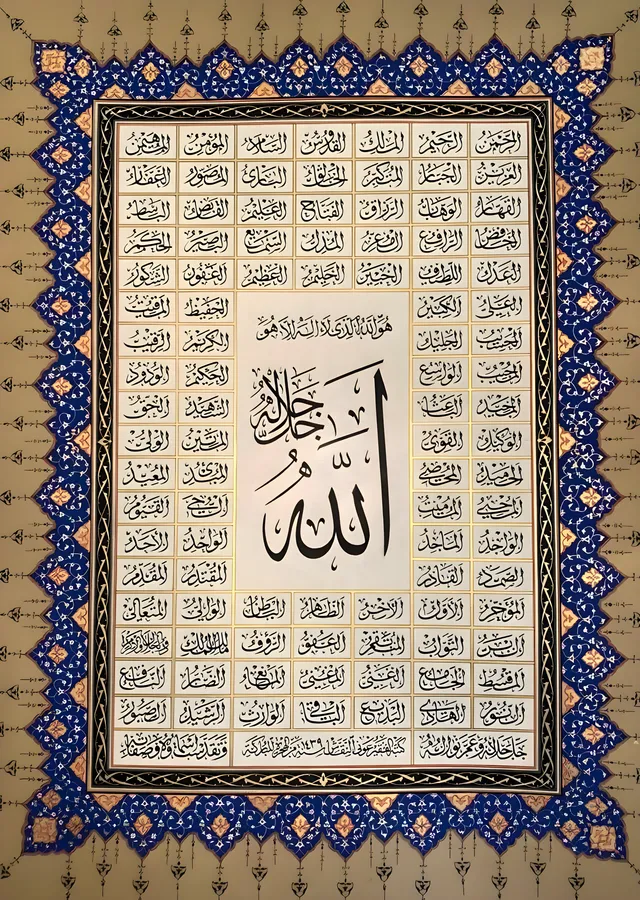 الرحمن الرحيم الملك القدوس السلام المؤمن المهيمن
العزيز الجبار المتكبر الخالق البارئ المصور الغفار
القهار الوهاب الرزاق الفتاح العليم القابض الباسط
الخافض الرافع المعز المذل السميع البصير الحكم
العدل اللطيف الخبير الحليم العظيم الغفور الشكور
العلي الكبير الحفيظ المقيت
هو الله الذي لا اله الا هو
الحسيب الجليل الكريم الرقيب
المجيب الواسع الحكيم الودود
جل جلاله
المجيد الباعث الشهيد الحق
الوكيل القوي المتين الولي
الحميد المحصي المبدئ المعيد
الله
المحيي المميت الحي القيوم
الواجد الماجد الواحد الاحد
الصمد القادر المقتدر المقدم
المؤخر الاول الآخر الظاهر الباطن الوالي المتعالي
البر التواب المنتقم العفو الرؤف مالك الملك ذو الجلال والاكرام
المقسط الجامع الغني المغني المانع الضار النافع
النور الهادي البديع الباقي الوارث الرشيد الصبور
جل جلاله وعم نواله وتقدست اسماؤه وصفاته